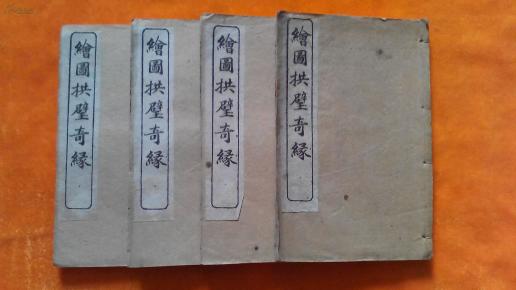 繪圖拱璧奇緣
繪圖拱璧奇緣
繪圖拱璧奇緣
繪圖拱璧奇緣